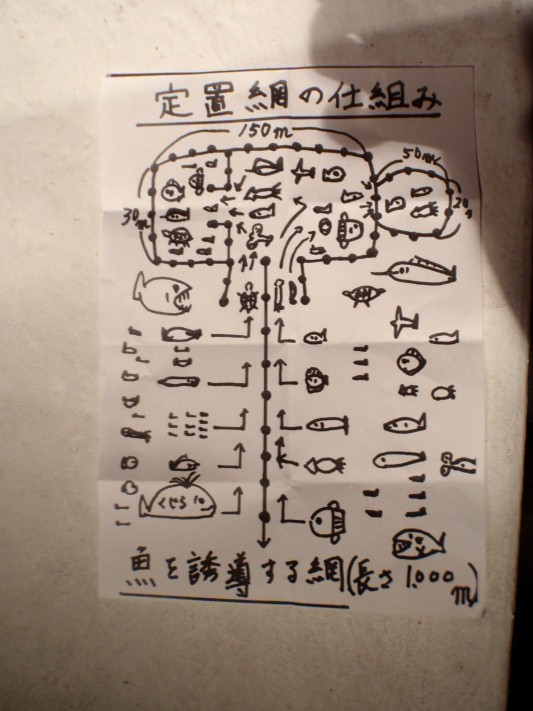 定置網の仕組み
150m
50m
30m
くじら
魚を誘導する網(長さ1.000m)